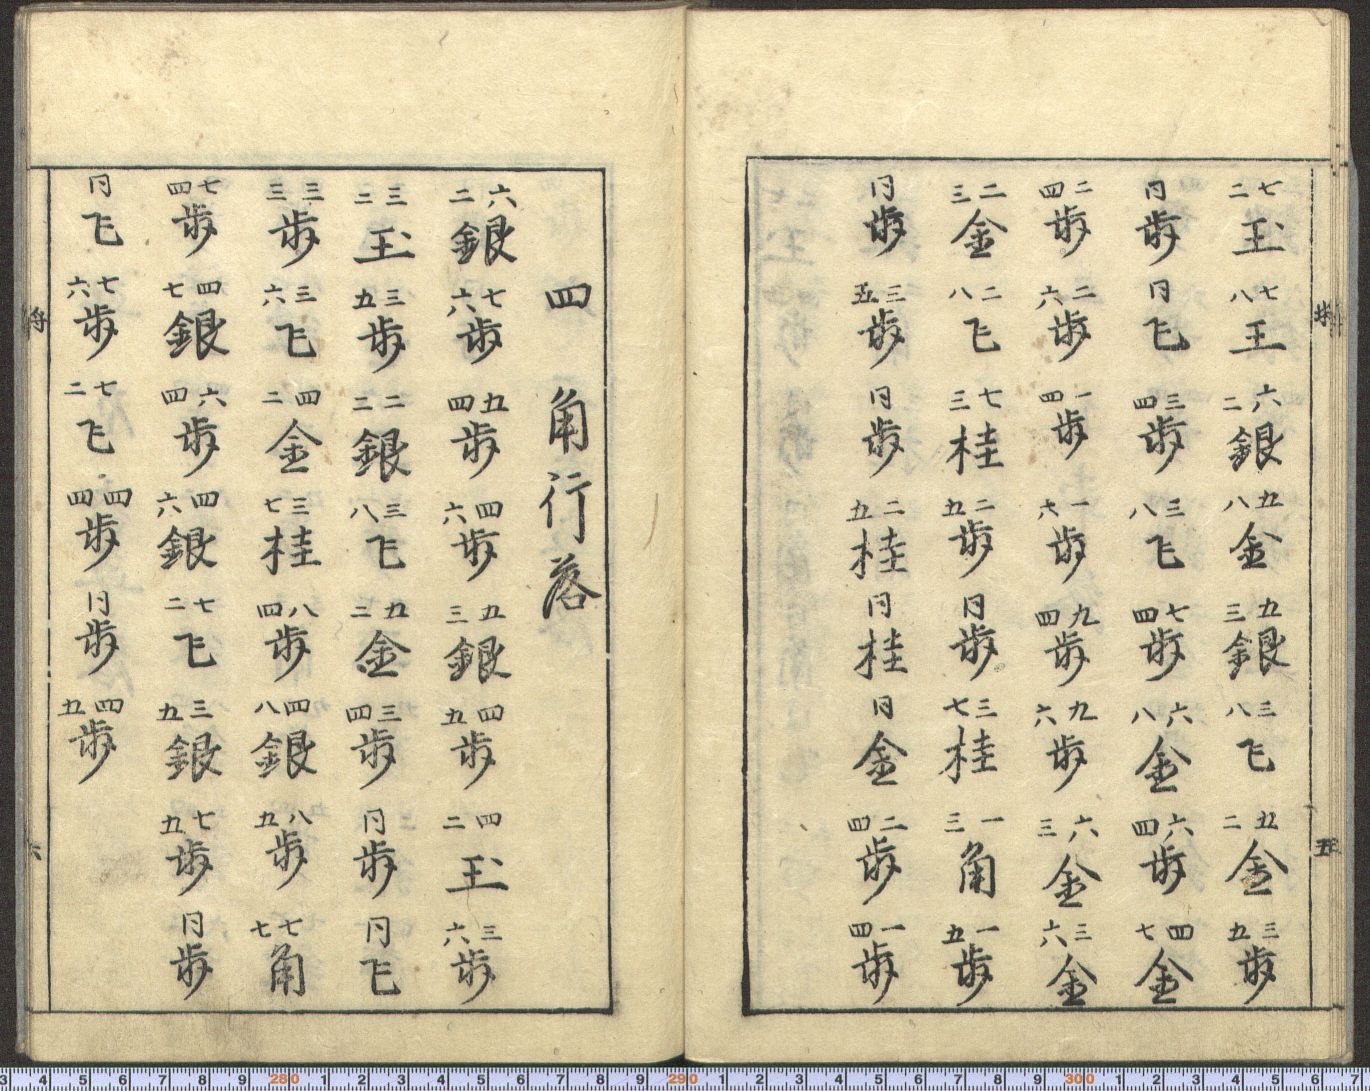 七二玉 七八王 六二銀 五八金 五三銀 三八飞 五二金 三五歩
同歩 同飞 三四歩 三八飞 七四歩 六八金 六四歩 四七金
二四歩 二六歩 一四歩 一六歩 九四歩 九六歩 六三金 三六金
二三金 二八飞 七三桂 二五歩 同歩 三七桂 一三角 一五歩
同歩 三五歩 同歩 二五桂 同桂 同金 二四歩 一四歩
四 角行落
六二銀 七六歩 五四歩 四六歩 五三銀 四五歩 四二玉 三六歩
三二玉 三五歩 二二銀 三八飞 五二金 三四歩 同歩 同飞
三三歩 三六飞 四二金 三七桂 八四歩 四八銀 八五歩 七七角
七四歩 四七銀 六四歩 四六銀 七二飞 三五銀 七五歩 同歩
同飞 七六歩 七二飞 四四歩 同歩 四五歩